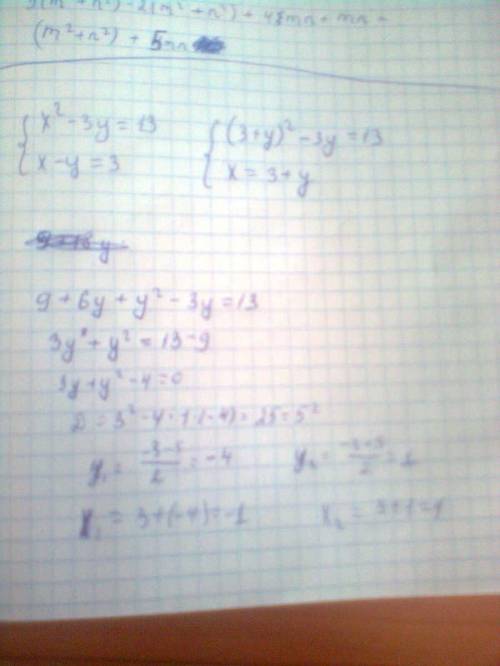 (m²+n²) + 5mn
x² - 3y = 13
x - y = 3
(3+y)² - 3y = 13
x = 3+y
9 + 6y + y² - 3y = 13
3y + y² = 13-9
3y + y² - 4 = 0
D = 3² - 4·1·(-4) = 25 = 5²
y₁ = (-3-5)/2 = -4 y₂ = (-3+5)/2 = 1
x₁ = 3+(-4) = -1 x₂ = 3+1 =